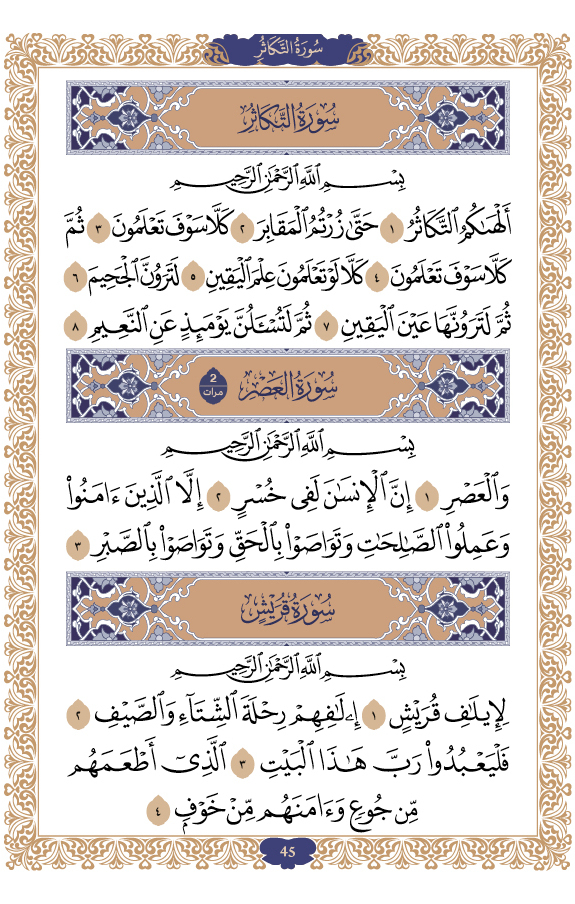 سُورَةُ التَّكَاثُرُ
سُورَةُ التَّكَاثُرُ
بِسْمِ ٱللَّهِ ٱلرَّحْمَٰنِ ٱلرَّحِيمِ
أَلْهَىٰكُمُ ٱلتَّكَاثُرُ ١ حَتَّىٰ زُرْتُمُ ٱلْمَقَابِرَ ٢ كَلَّا سَوْفَ تَعْلَمُونَ ٣ ثُمَّ
كَلَّا سَوْفَ تَعْلَمُونَ ٤ كَلَّا لَوْ تَعْلَمُونَ عِلْمَ ٱلْيَقِينِ ٥ لَتَرَوُنَّ ٱلْجَحِيمَ ٦
ثُمَّ لَتَرَوُنَّهَا عَيْنَ ٱلْيَقِينِ ٧ ثُمَّ لَتُسْـَٔلُنَّ يَوْمَئِذٍ عَنِ ٱلنَّعِيمِ ٨
سُورَةُ العَصْرِ 2 مرات
بِسْمِ ٱللَّهِ ٱلرَّحْمَٰنِ ٱلرَّحِيمِ
وَٱلْعَصْرِ ١ إِنَّ ٱلْإِنسَٰنَ لَفِى خُسْرٍ ٢ إِلَّا ٱلَّذِينَ ءَامَنُوا۟
وَعَمِلُوا۟ ٱلصَّٰلِحَٰتِ وَتَوَاصَوْا۟ بِٱلْحَقِّ وَتَوَاصَوْا۟ بِٱلصَّبْرِ ٣
سُورَةُ قُرَيْشٍ
بِسْمِ ٱللَّهِ ٱلرَّحْمَٰنِ ٱلرَّحِيمِ
لِإِيلَٰفِ قُرَيْشٍ ١ إِۦلَٰفِهِمْ رِحْلَةَ ٱلشِّتَآءِ وَٱلصَّيْفِ ٢
فَلْيَعْبُدُوا۟ رَبَّ هَٰذَا ٱلْبَيْتِ ٣ ٱلَّذِىٓ أَطْعَمَهُم
مِّن جُوعٍ وَءَامَنَهُم مِّنْ خَوْفٍۭ ٤
45